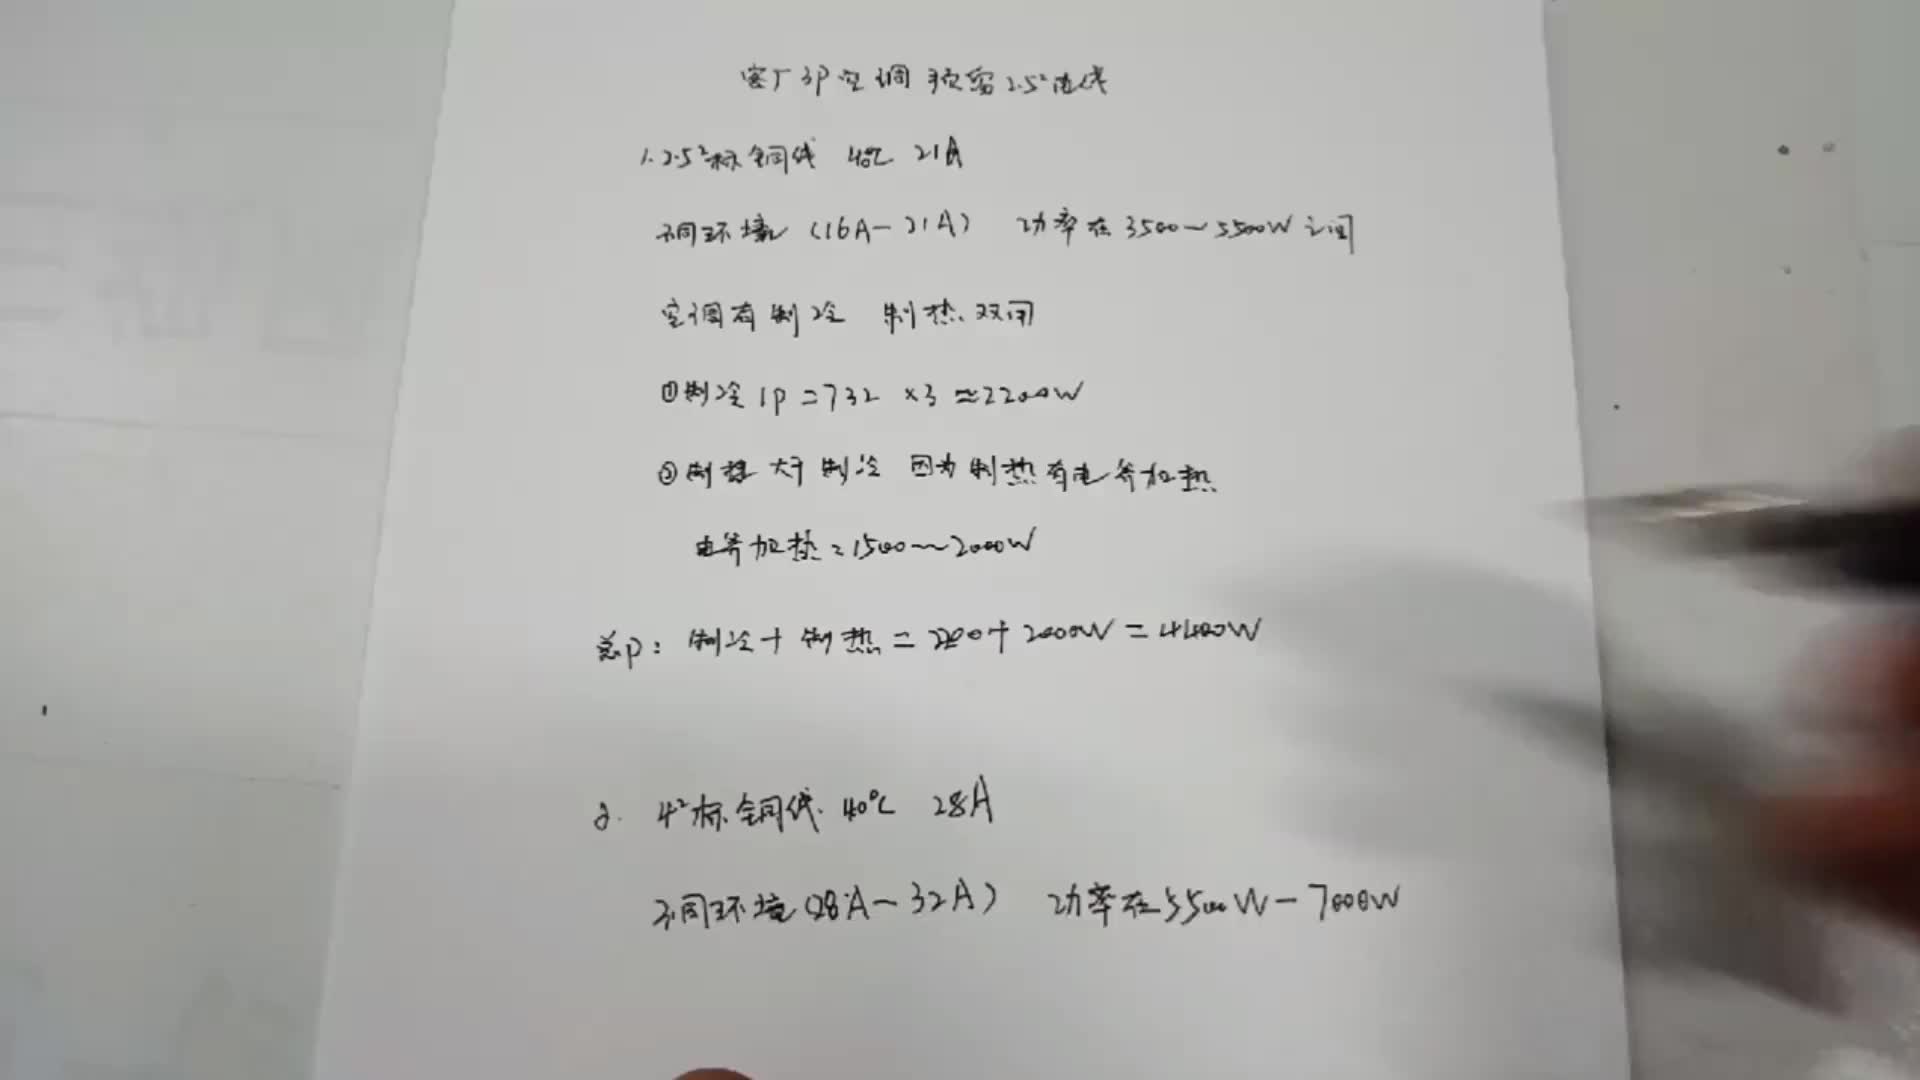 客厅3P空调预留2.5²电线
1.2.5²标铜线 40℃ 21A
不同环境(16A-21A) 功率在3500~5500W之间
空调有制冷 制热.双用
①制冷1P=732×3≈2200W
②制热大于制冷 因为制热有电参加热
电参加热=1500~2000W
总P:制冷+制热=2200+2000W=4400W
2. 4²标铜线.40℃ 28A
不同环境(28A~32A) 功率在5500W-7000W